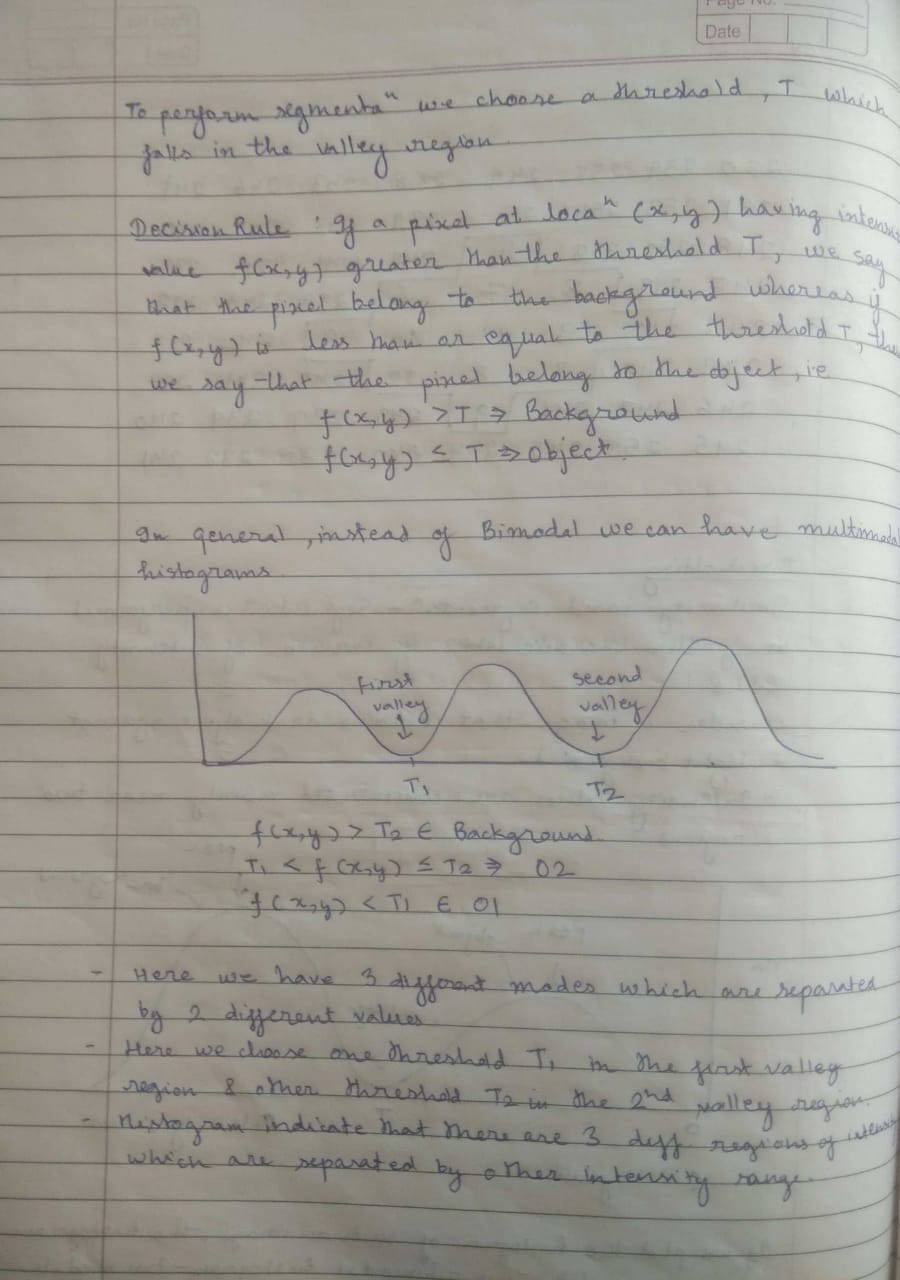 Page No.
Date
To perform segmentaⁿ we choose a threshold, T which
falls in the valley region.
Decision Rule : If a pixel at locaⁿ (x,y) having intensi
value f(x,y) greater than the threshold T, we say
that the pixel belong to the background whereas if
f(x,y) is less than or equal to the threshold T, the
we say that the pixel belong to the object, ie
f(x,y) > T ⇒ Background
f(x,y) ≤ T ⇒ object.
In general, instead of Bimodal we can have multimodal
histograms.
first
valley
second
valley
T₁
T₂
f(x,y) > T₂ ∈ Background.
T₁ < f(x,y) ≤ T₂ ⇒ O2
f(x,y) < T₁ ∈ O1
- Here we have 3 different modes which are separated
by 2 different values
- Here we choose one threshold T₁ in the first valley
region & other threshold T₂ in the 2nd valley region.
- Histogram indicate that there are 3 diff regions of intensi
which are separated by other intensity range.